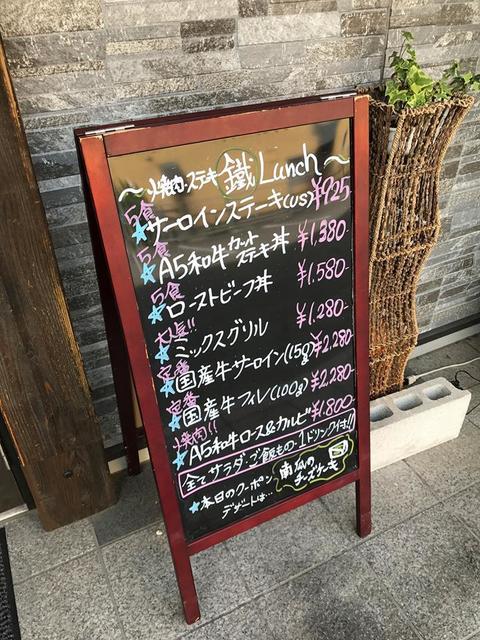 〜焼肉・ステキ 鐵 Lunch〜
5食
★サーロインステーキ(US) ¥925-
5食
★A5和牛カットステーキ丼 ¥1,380-
5食
★ローストビーフ丼 ¥1,580-
大人気!!
★ミックスグリル ¥1,280-
定番
★国産牛サーロイン(15g) ¥2,280-
定番
★国産牛フィレ(100g) ¥2,280-
焼肉!!
★A5和牛ロース&カルビ ¥1,800-
全てサラダ・ご飯もの・1ドリンク付!!
★本日のクーポン
デザートは…
南瓜の
チーズケーキ